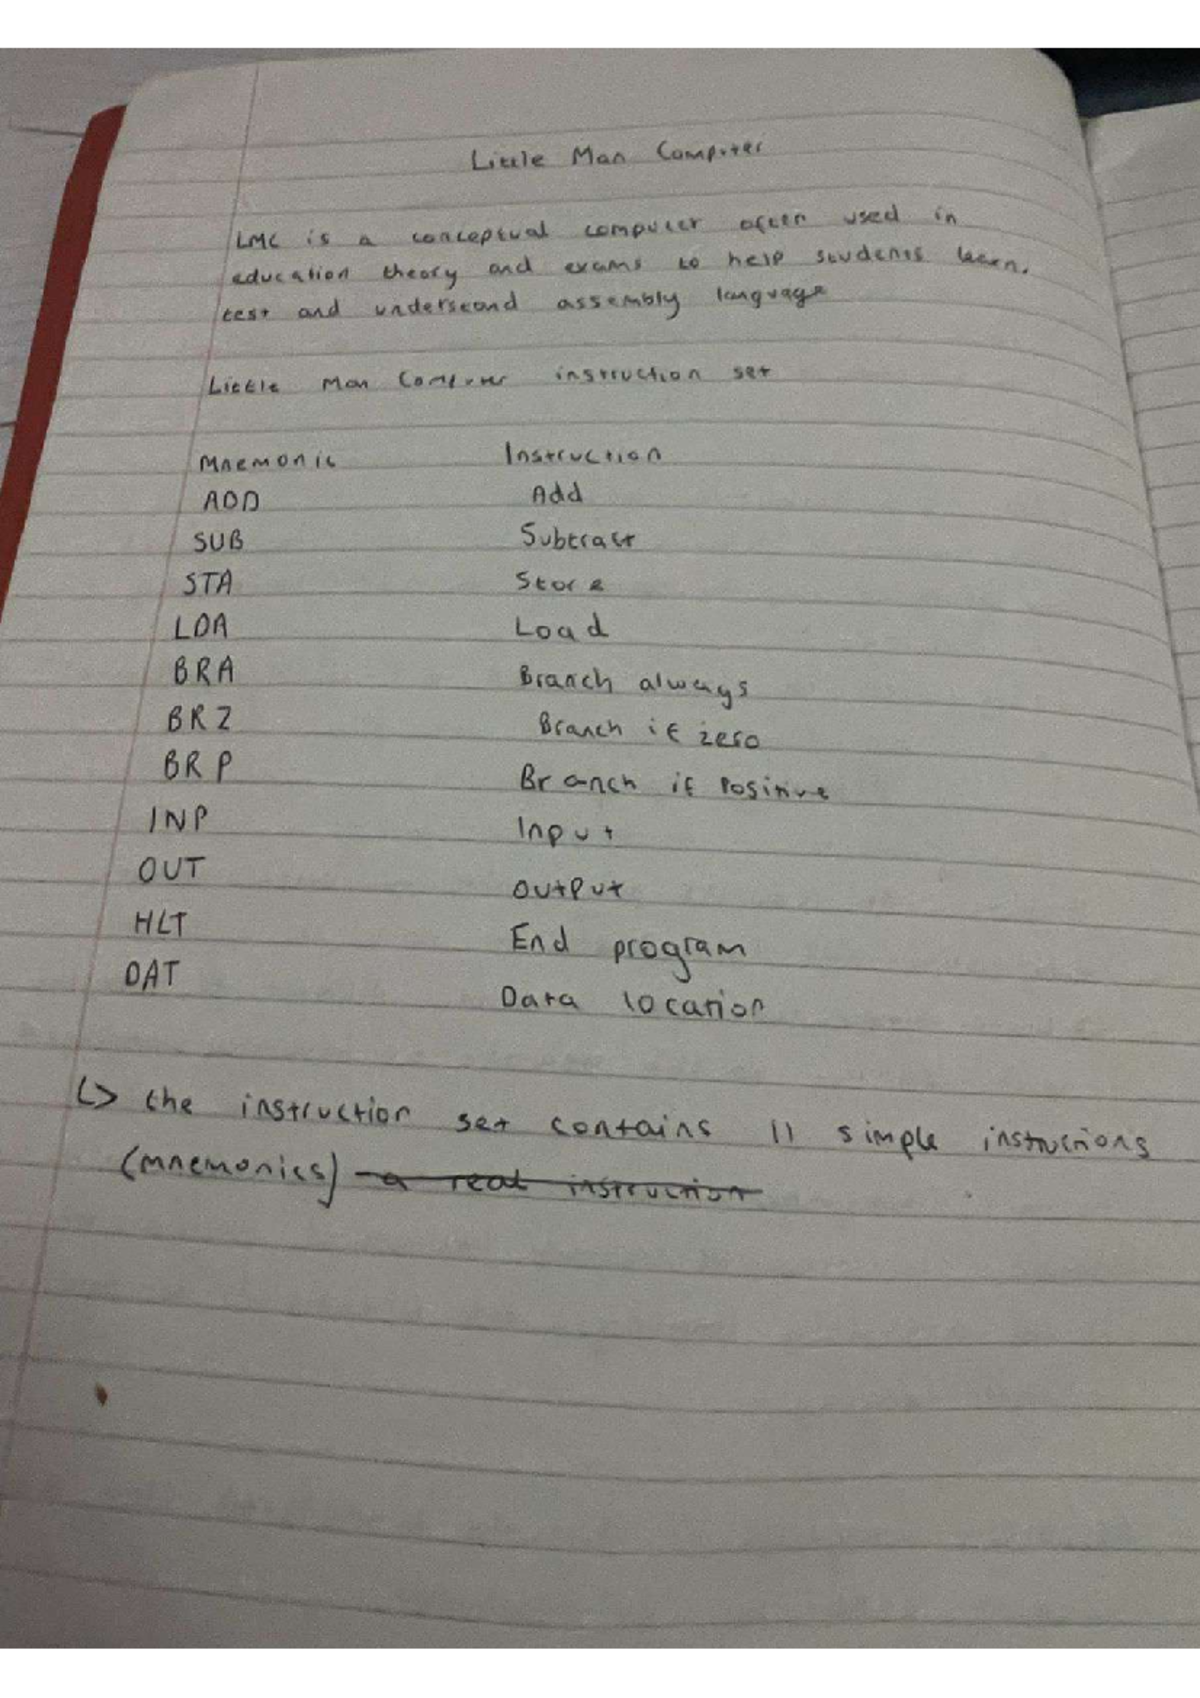 Little Man Computer
LMC is a conceptual computer often used in
education theory and exams to help students learn,
test and understand assembly language
Little Man Computer instruction set
Mnemonic Instruction
ADD Add
SUB Subtract
STA Store
LDA Load
BRA Branch always
BRZ Branch if zero
BRP Branch if Positive
INP Input
OUT OutPut
HLT End program
DAT Data location
↳ the instruction set contains 11 simple instructions
(mnemonics) a real instruction